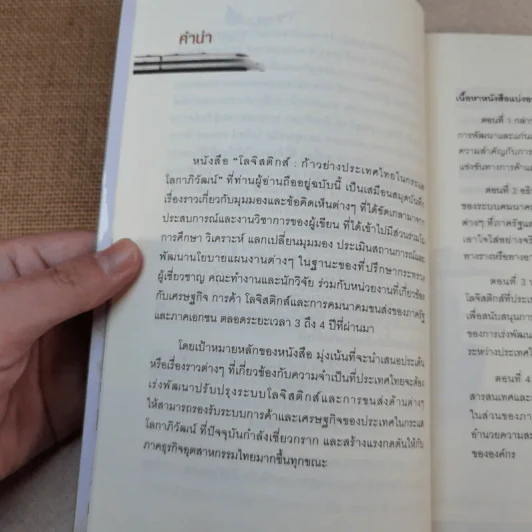 คำนำ
หนังสือ "โลจิสติกส์ : ก้าวย่างประเทศไทยในกระแส
โลกาภิวัฒน์" ที่ท่านผู้อ่านถืออยู่ฉบับนี้ เป็นเสมือนสมุดบันทึก
เรื่องราวเกี่ยวกับมุมมองและข้อคิดเห็นต่างๆ ที่ได้ขัดเกลามาจาก
ประสบการณ์และงานวิชาการของผู้เขียน ที่ได้เข้าไปมีส่วนร่วมใน
การศึกษา วิเคราะห์ แลกเปลี่ยนมุมมอง ประเมินสถานการณ์และ
พัฒนานโยบายแผนงานต่างๆ ในฐานะของที่ปรึกษากระทรวง
ผู้เชี่ยวชาญ คณะทำงานและนักวิจัย ร่วมกับหน่วยงานที่เกี่ยวข้อง
กับเศรษฐกิจ การค้า โลจิสติกส์และการคมนาคมขนส่งของภาครัฐ
และภาคเอกชน ตลอดระยะเวลา 3 ถึง 4 ปีที่ผ่านมา
โดยเป้าหมายหลักของหนังสือ มุ่งเน้นที่จะนำเสนอประเด็น
หรือเรื่องราวต่างๆ ที่เกี่ยวข้องกับความจำเป็นที่ประเทศไทยจะต้อง
เร่งพัฒนาปรับปรุงระบบโลจิสติกส์และการขนส่งด้านต่างๆ
ให้สามารถรองรับระบบการค้าและเศรษฐกิจของประเทศในกระแส
โลกาภิวัฒน์ ที่ปัจจุบันกำลังเชี่ยวกราก และสร้างแรงกดดันให้กับ
ภาคธุรกิจอุตสาหกรรมไทยมากขึ้นทุกขณะ
เนื้อหาหนังสือแบ่งออก
ตอนที่ 1 กล่าว
การพัฒนาและแก่น
ความสำคัญกับการ
แข่งขันทางการค้าแ
ตอนที่ 2 อธิ
ของระบบคมนาคม
ต่างๆ ที่ภาครัฐและ
เอาใจใส่อย่างจริ
ทางรางหรือทางเ
ตอนที่ 3
โลจิสติกส์ที่ประ
เพื่อสนับสนุนการ
ของการเร่งพัฒน
ระหว่างประเทศใ
ตอนที่ 4
สารสนเทศและ
ในส่วนของภา
อำนวยความส
ขององค์กร